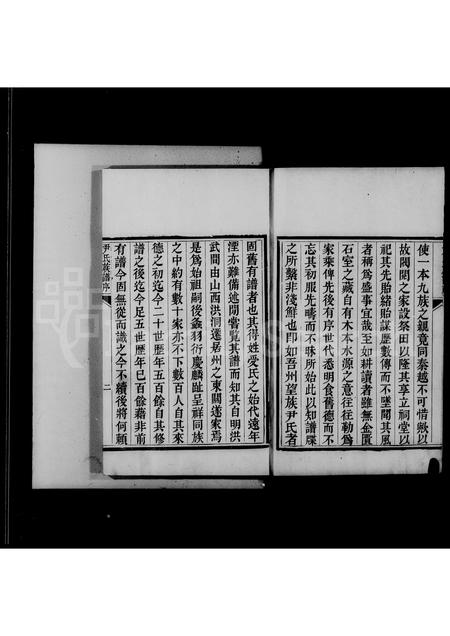 使一本九族之親竟同秦越不可惜歟以
故閥閱之家設祭田以隆其享立祠堂以
祀其先胎緒貽謀歷數傳而不墜聞其風
者稱為盛事宜哉至如耕讀者雖無金匱
石室之藏自有木本水源之意往往勒為
家乘傳先後有序世代悉明食舊德而不
忘其初服先疇而不昧所始此以知譜牒
之所繫非淺鮮也即如吾州望族尹氏者
固舊有譜者也其得姓受氏之始代遠年
湮亦難備述閒嘗覽其譜而知其自明洪
武間由山西洪洞遷居州之東關遂家焉
是為始祖嗣後螽羽衍慶麟趾呈祥同族
之中約有數十家亦不下數百人自其來
德之初迄今二十世歷年五百餘自其修
譜之後迄今足五世歷年已百餘藉非前
有譜今固無從而識之今不續後將何賴
尹氏族譜序
二